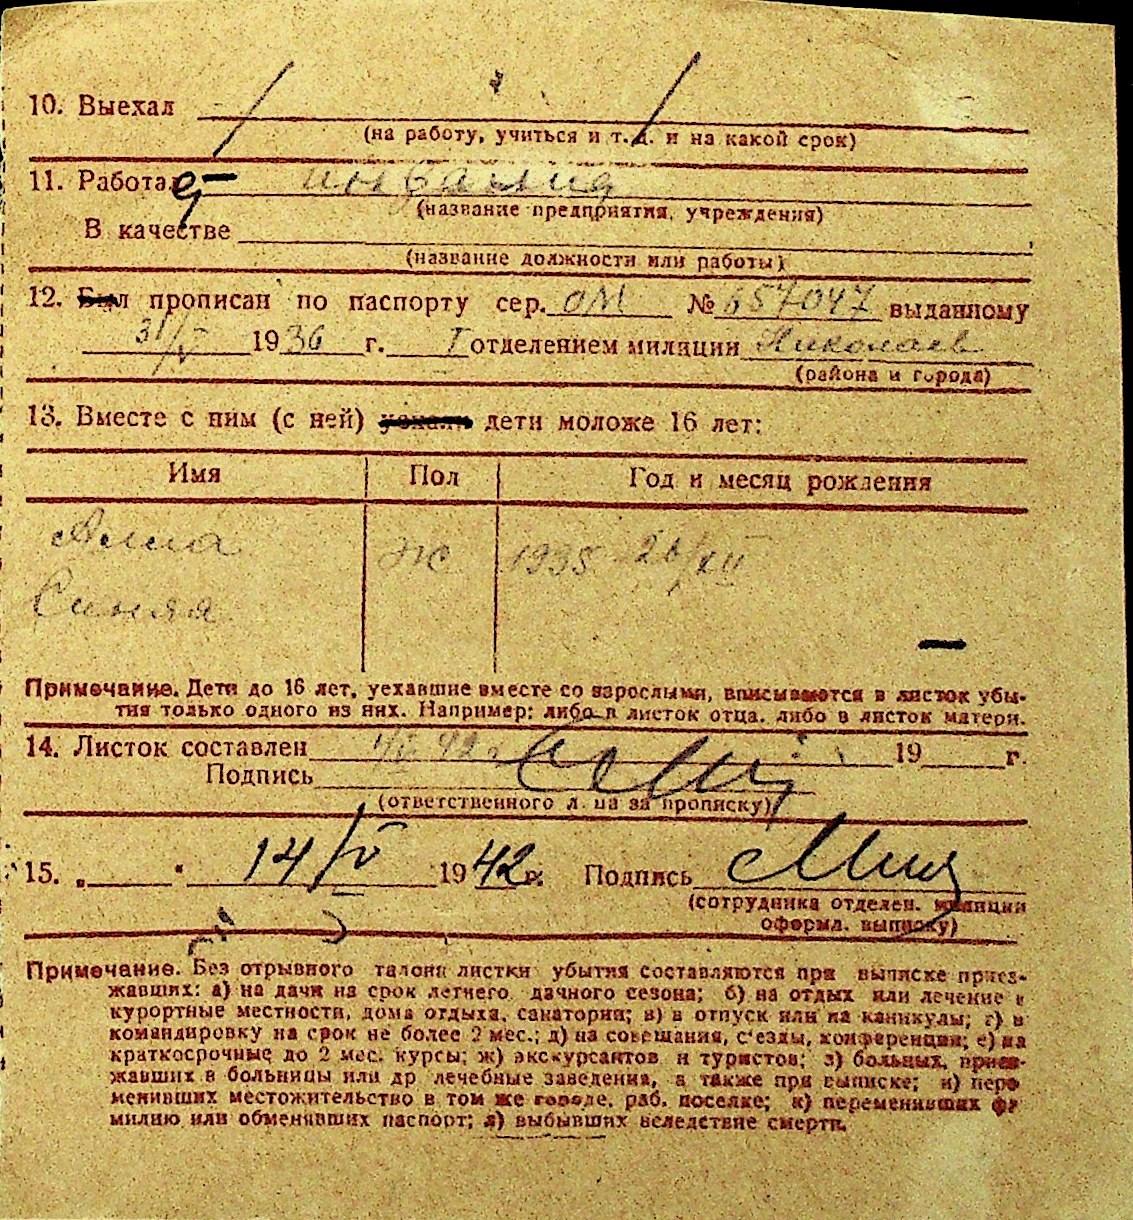 10. Выехал
(на работу, учиться и т. д. и на какой срок)
11. Работа инвалид
(название предприятия, учреждения)
В качестве
(название должности или работы)
12. Был прописан по паспорту сер. ОМ № 657047 выданному
31/V 1936 г. I отделением милиции Николаев
(района и города)
13. Вместе с ним (с ней) уехали дети моложе 16 лет:
Имя Пол Год и месяц рождения
Алла Ж 1935 26/XII
Синяя
Примечание. Дети до 16 лет, уехавшие вместе со взрослыми, вписываются в листок убы-
тия только одного из них. Например: либо в листок отца, либо в листок матери.
14. Листок составлен 42 г. 19 г.
Подпись
(ответственного л. ца за прописку)
15. „ " 14/V 1942 г. Подпись
(сотрудника отделен. милиции
оформл. выписку)
Примечание. Без отрывного талона листки убытия составляются при выписке приез-
жавших: а) на дачи на срок летнего дачного сезона; б) на отдых или лечение в
курортные местности, дома отдыха, санатории; в) в отпуск или на каникулы; г) в
командировку на срок не более 2 мес.; д) на совещания, с'езды, конференции; е) на
краткосрочные до 2 мес. курсы; ж) экскурсантов и туристов; з) больных, приез-
жавших в больницы или др лечебные заведения, а также при выписке; и) пере
менивших местожительство в том же городе, раб. поселке; к) переменивших фа
милию или обменявших паспорт; л) выбывших вследствие смерти.